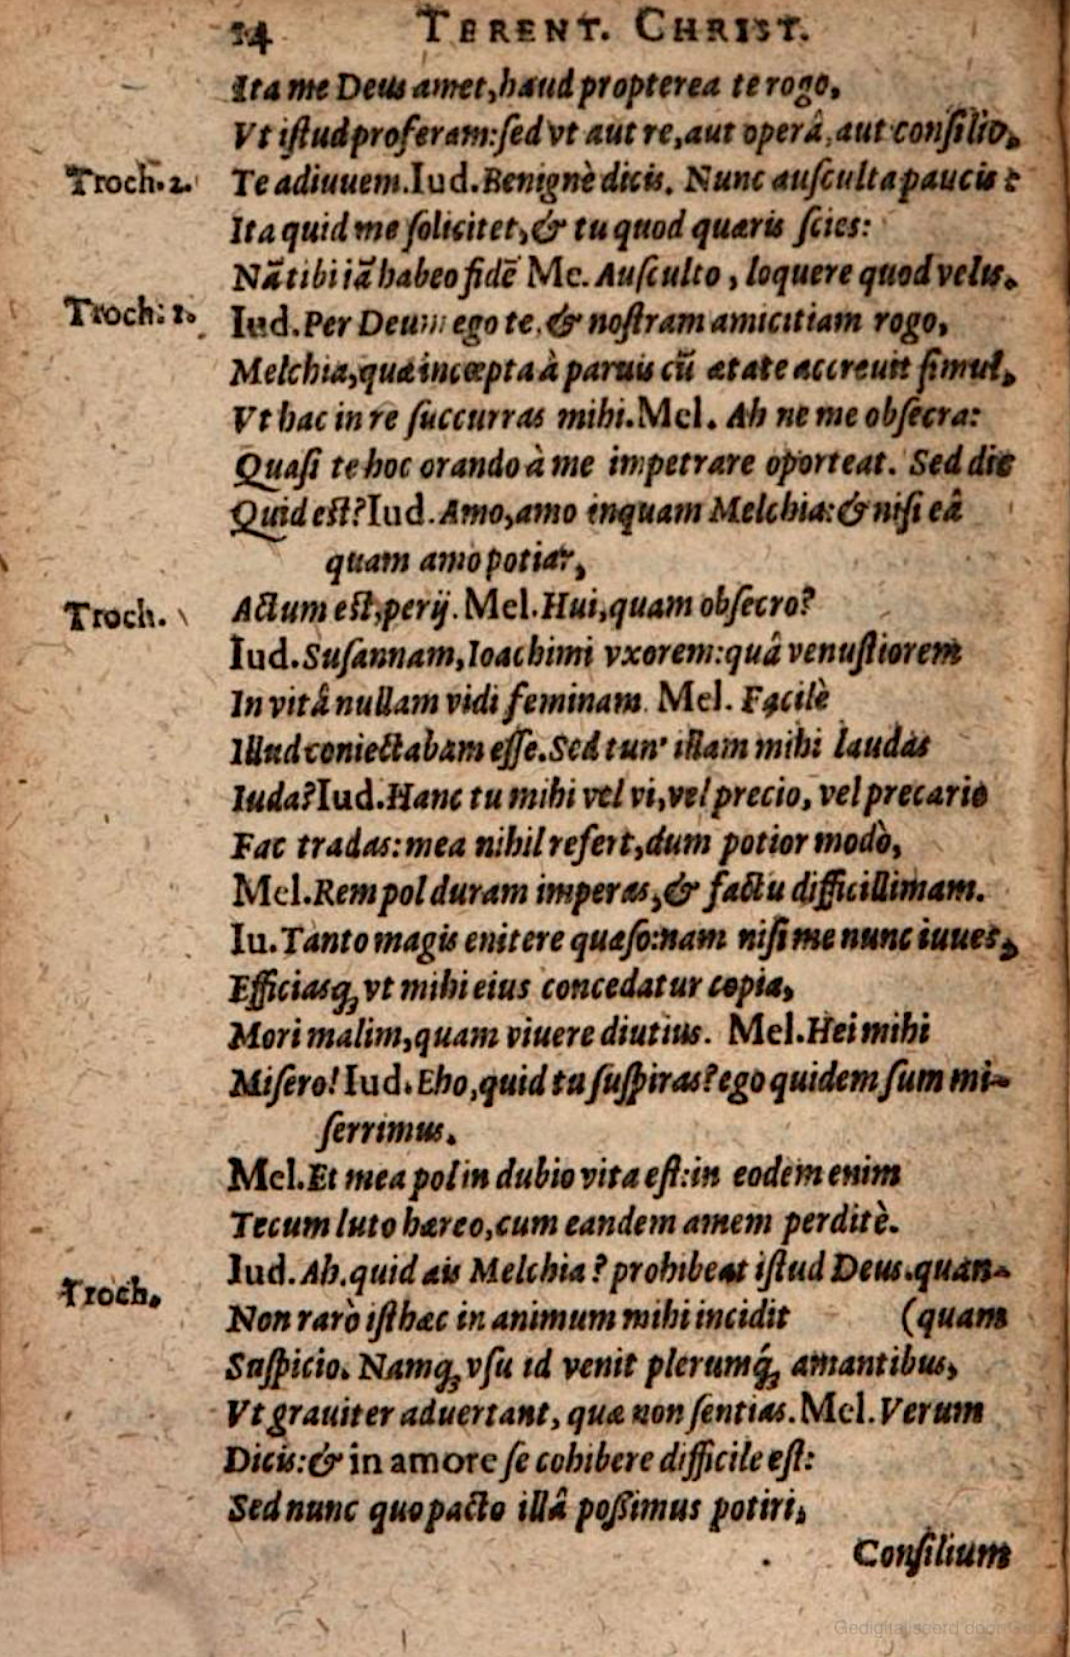 14 TERENT. CHRIST.
Ita me Deus amet, haud propterea te rogo,
Vt istud proferam: sed vt aut re, aut operâ, aut consilio,
Troch. 2. Te adiuuem. Iud. Benignè dicis. Nunc ausculta paucis:
Ita quid me solicitet, & tu quod quæris scies:
Nã tibi iã habeo fidẽ Me. Ausculto, loquere quod velis.
Troch: 1. Iud. Per Deum ego te, & nostram amicitiam rogo,
Melchia, quæ incœpta à paruis cũ ætate accreuit simul,
Vt hac in re succurras mihi. Mel. Ah ne me obsecra:
Quasi te hoc orando à me impetrare oporteat. Sed dic
Quid est? Iud. Amo, amo inquam Melchia: & nisi eâ
quam amo potiar,
Troch. Actum est, perij. Mel. Hui, quam obsecro?
Iud. Susannam, Ioachimi vxorem: quâ venustiorem
In vitâ nullam vidi feminam. Mel. Facilè
Illud coniectabam esse. Sed tun' illam mihi laudas
Iuda? Iud. Hanc tu mihi vel vi, vel precio, vel precario
Fac tradas: mea nihil refert, dum potior modò,
Mel. Rem pol duram imperas, & factu difficillimam.
Iu. Tanto magis enitere quæso: nam nisi me nunc iuues,
Efficiasq́; vt mihi eius concedatur copia,
Mori malim, quam viuere diutius. Mel. Hei mihi
Misero! Iud. Eho, quid tu suspiras? ego quidem sum mi-
serrimus.
Mel. Et mea pol in dubio vita est: in eodem enim
Tecum luto hæreo, cum eandem amem perditè.
Iud. Ah. quid ais Melchia? prohibeat istud Deus. quan-
Troch. Non rarò isthæc in animum mihi incidit (quam
Suspicio. Namq; vsu id venit plerumq́; amantibus,
Vt grauiter aduertant, quæ non sentias. Mel. Verum
Dicis: & in amore se cohibere difficile est:
Sed nunc quo pacto illâ possimus potiri,
Consilium
Gedigitaliseerd door